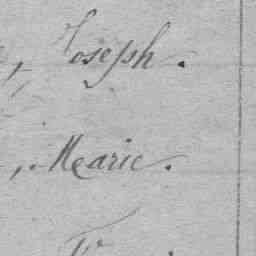 , Joseph.
,. Marie.